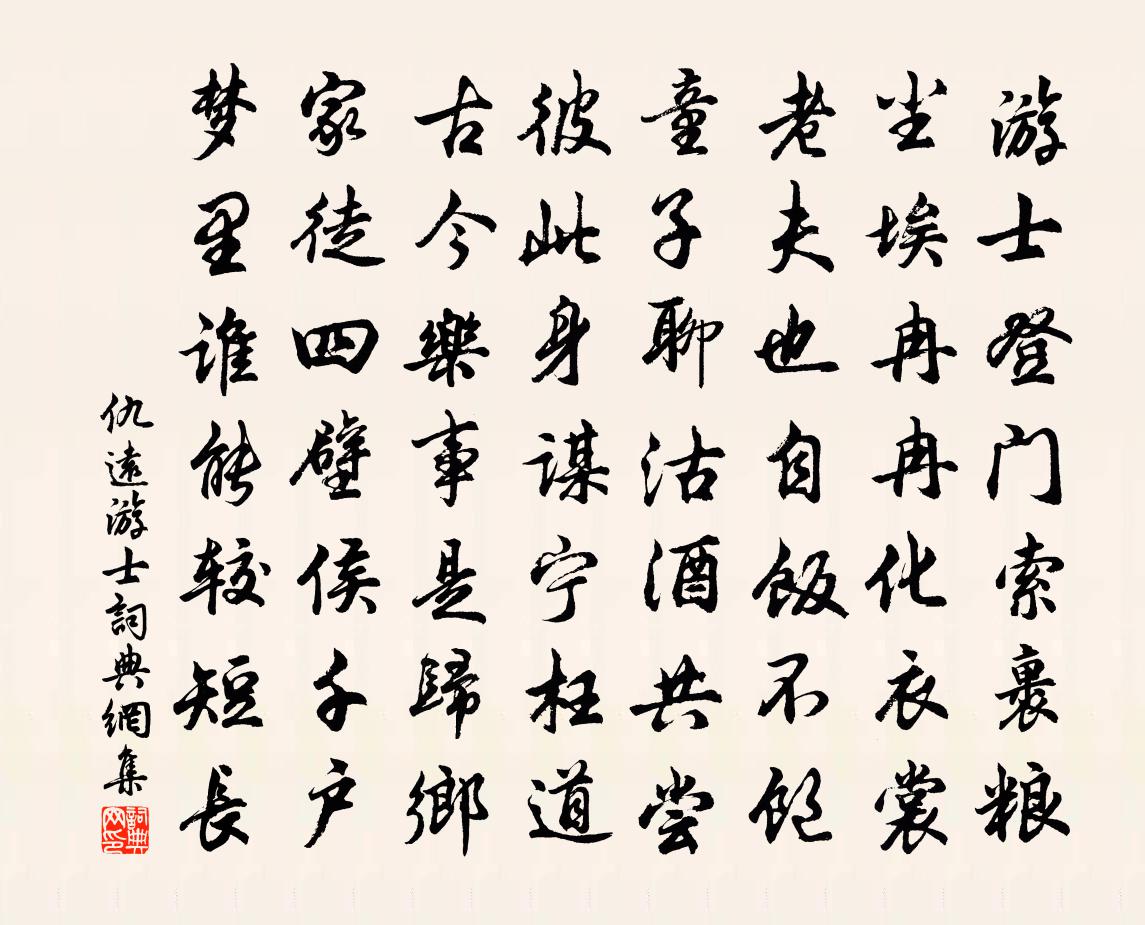 游士登门索裹粮
尘埃冉冉化衣裳
老夫也自饭不饱
童子聊沽酒共尝
彼此身谋宁枉道
古今樂事是歸鄉
家徒四壁侯千户
梦里谁能较短長
仇遠游士詞典網集
詞典网印